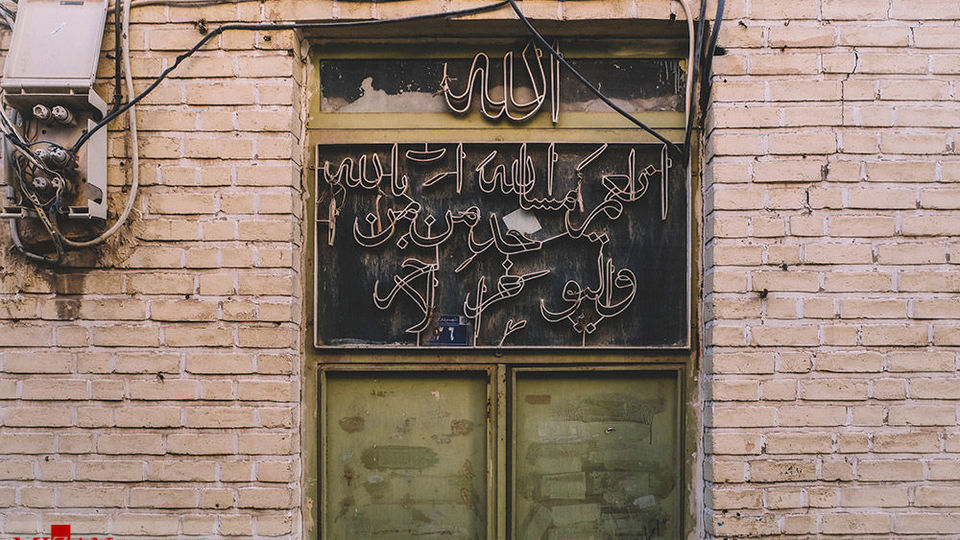 الله
انما یعمر مساجد الله من امن بالله
والیوم الاخر
٦